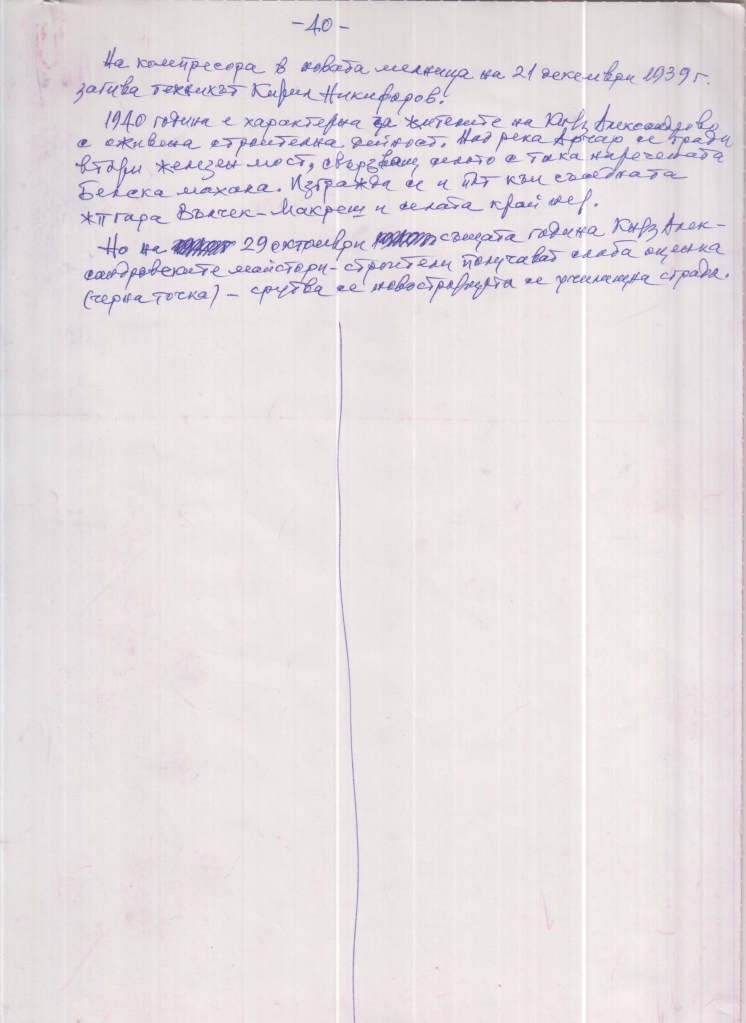 -40-
На компресора в новата мелница на 21 декември 1939 г.
загива техникът Кирил Никифоров.
1940 година е характерна за жителите на Княз Александрово
с оживена строителна дейност. Над река Арчар се гради
втори железен мост, свързващ селото с така наречената
Белска махала. Изгражда се и път към съседната
жп гара Вълчек-Макреш и селата край нея.
Но на 29 октомври същата година Княз Алек-
сандровските майстори-строители получават слаба оценка
(черна точка) - срутва се новостроящата се училищна сграда.